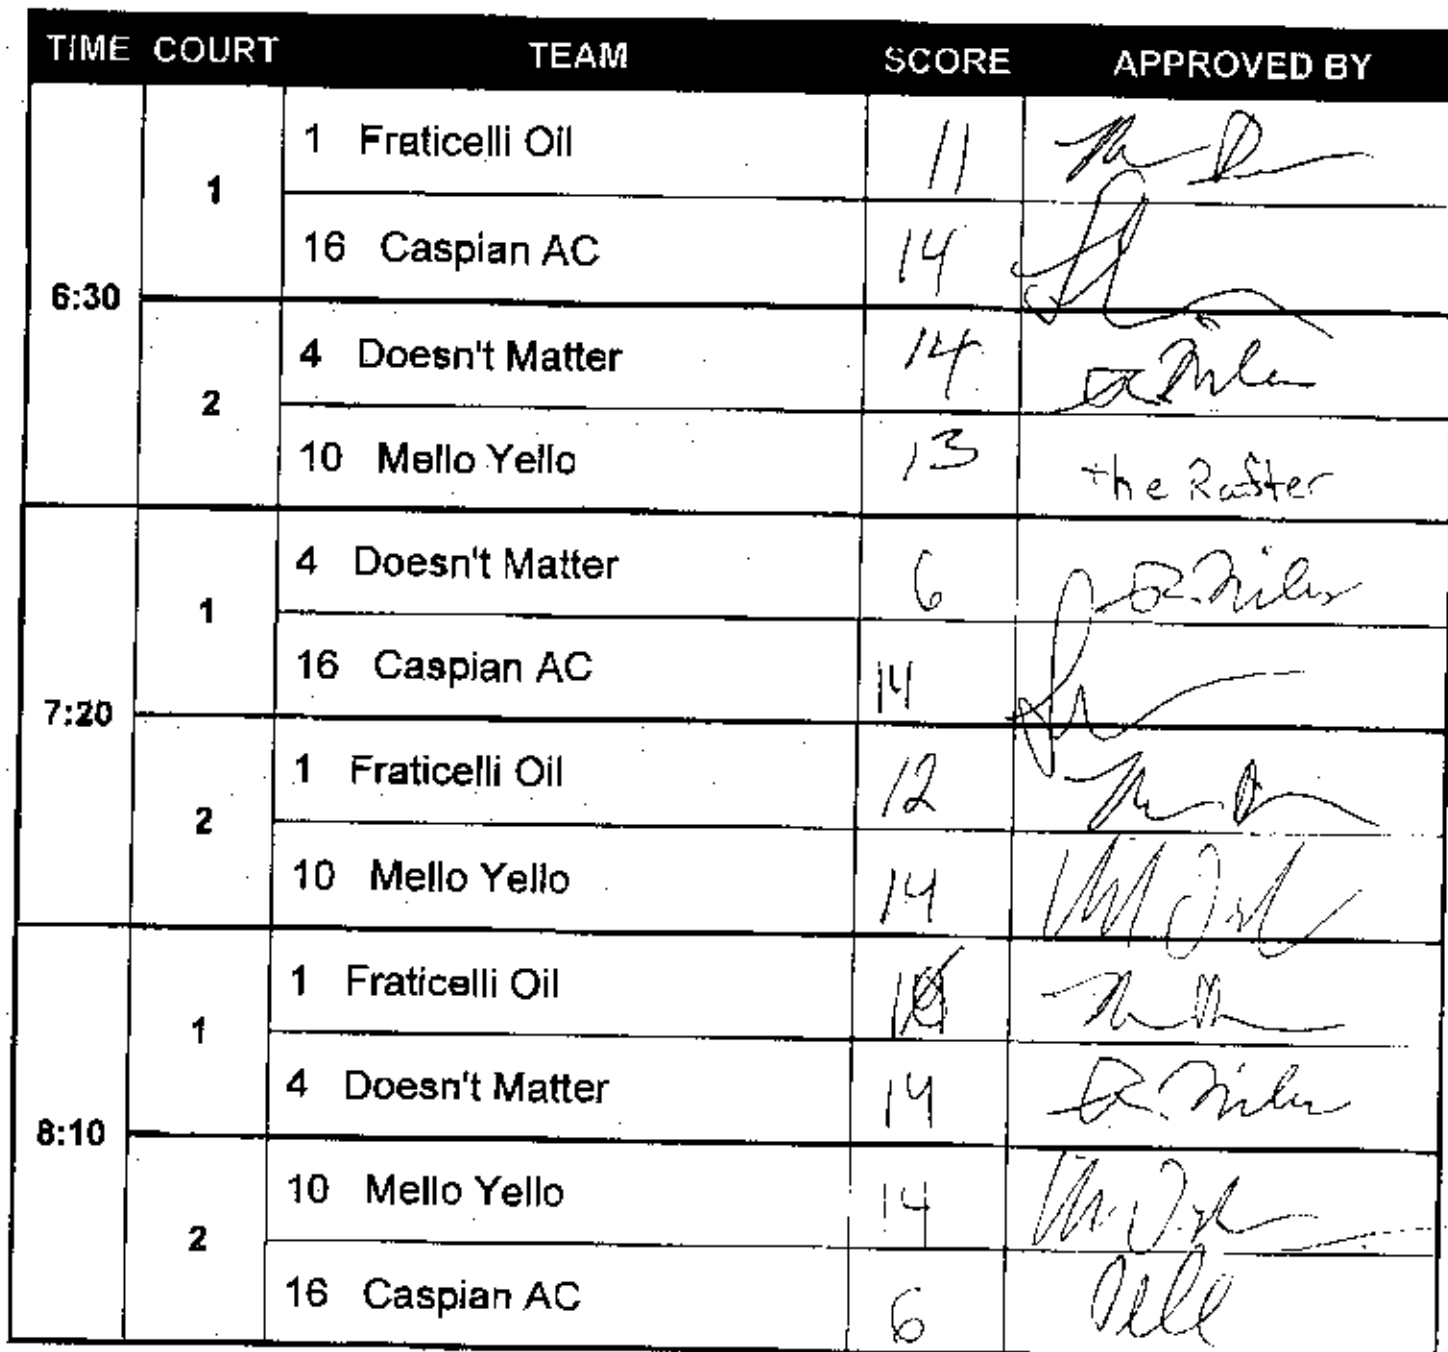 TIME COURT TEAM SCORE APPROVED BY
6:30
1
1 Fraticelli Oil 11
16 Caspian AC 14
2
4 Doesn't Matter 14
10 Mello Yello 13 the Raster
7:20
1
4 Doesn't Matter 6
16 Caspian AC 14
2
1 Fraticelli Oil 12
10 Mello Yello 14
8:10
1
1 Fraticelli Oil
4 Doesn't Matter 14
2
10 Mello Yello 14
16 Caspian AC 6